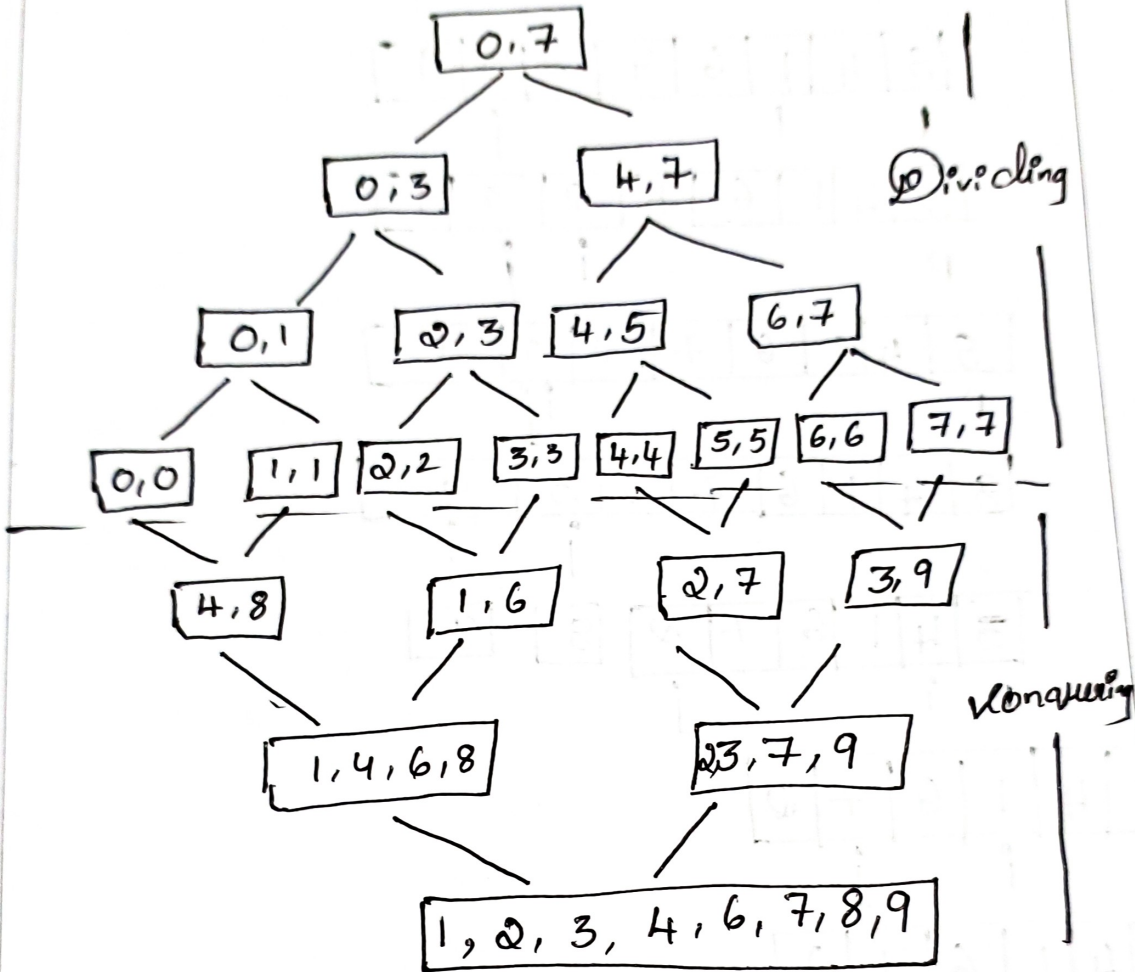 0,7
0,3 4,7
Dividing
0,1 2,3 4,5 6,7
0,0 1,1 2,2 3,3 4,4 5,5 6,6 7,7
4,8 1,6 2,7 3,9
1,4,6,8 2,3,7,9
1, 2, 3, 4, 6, 7, 8, 9